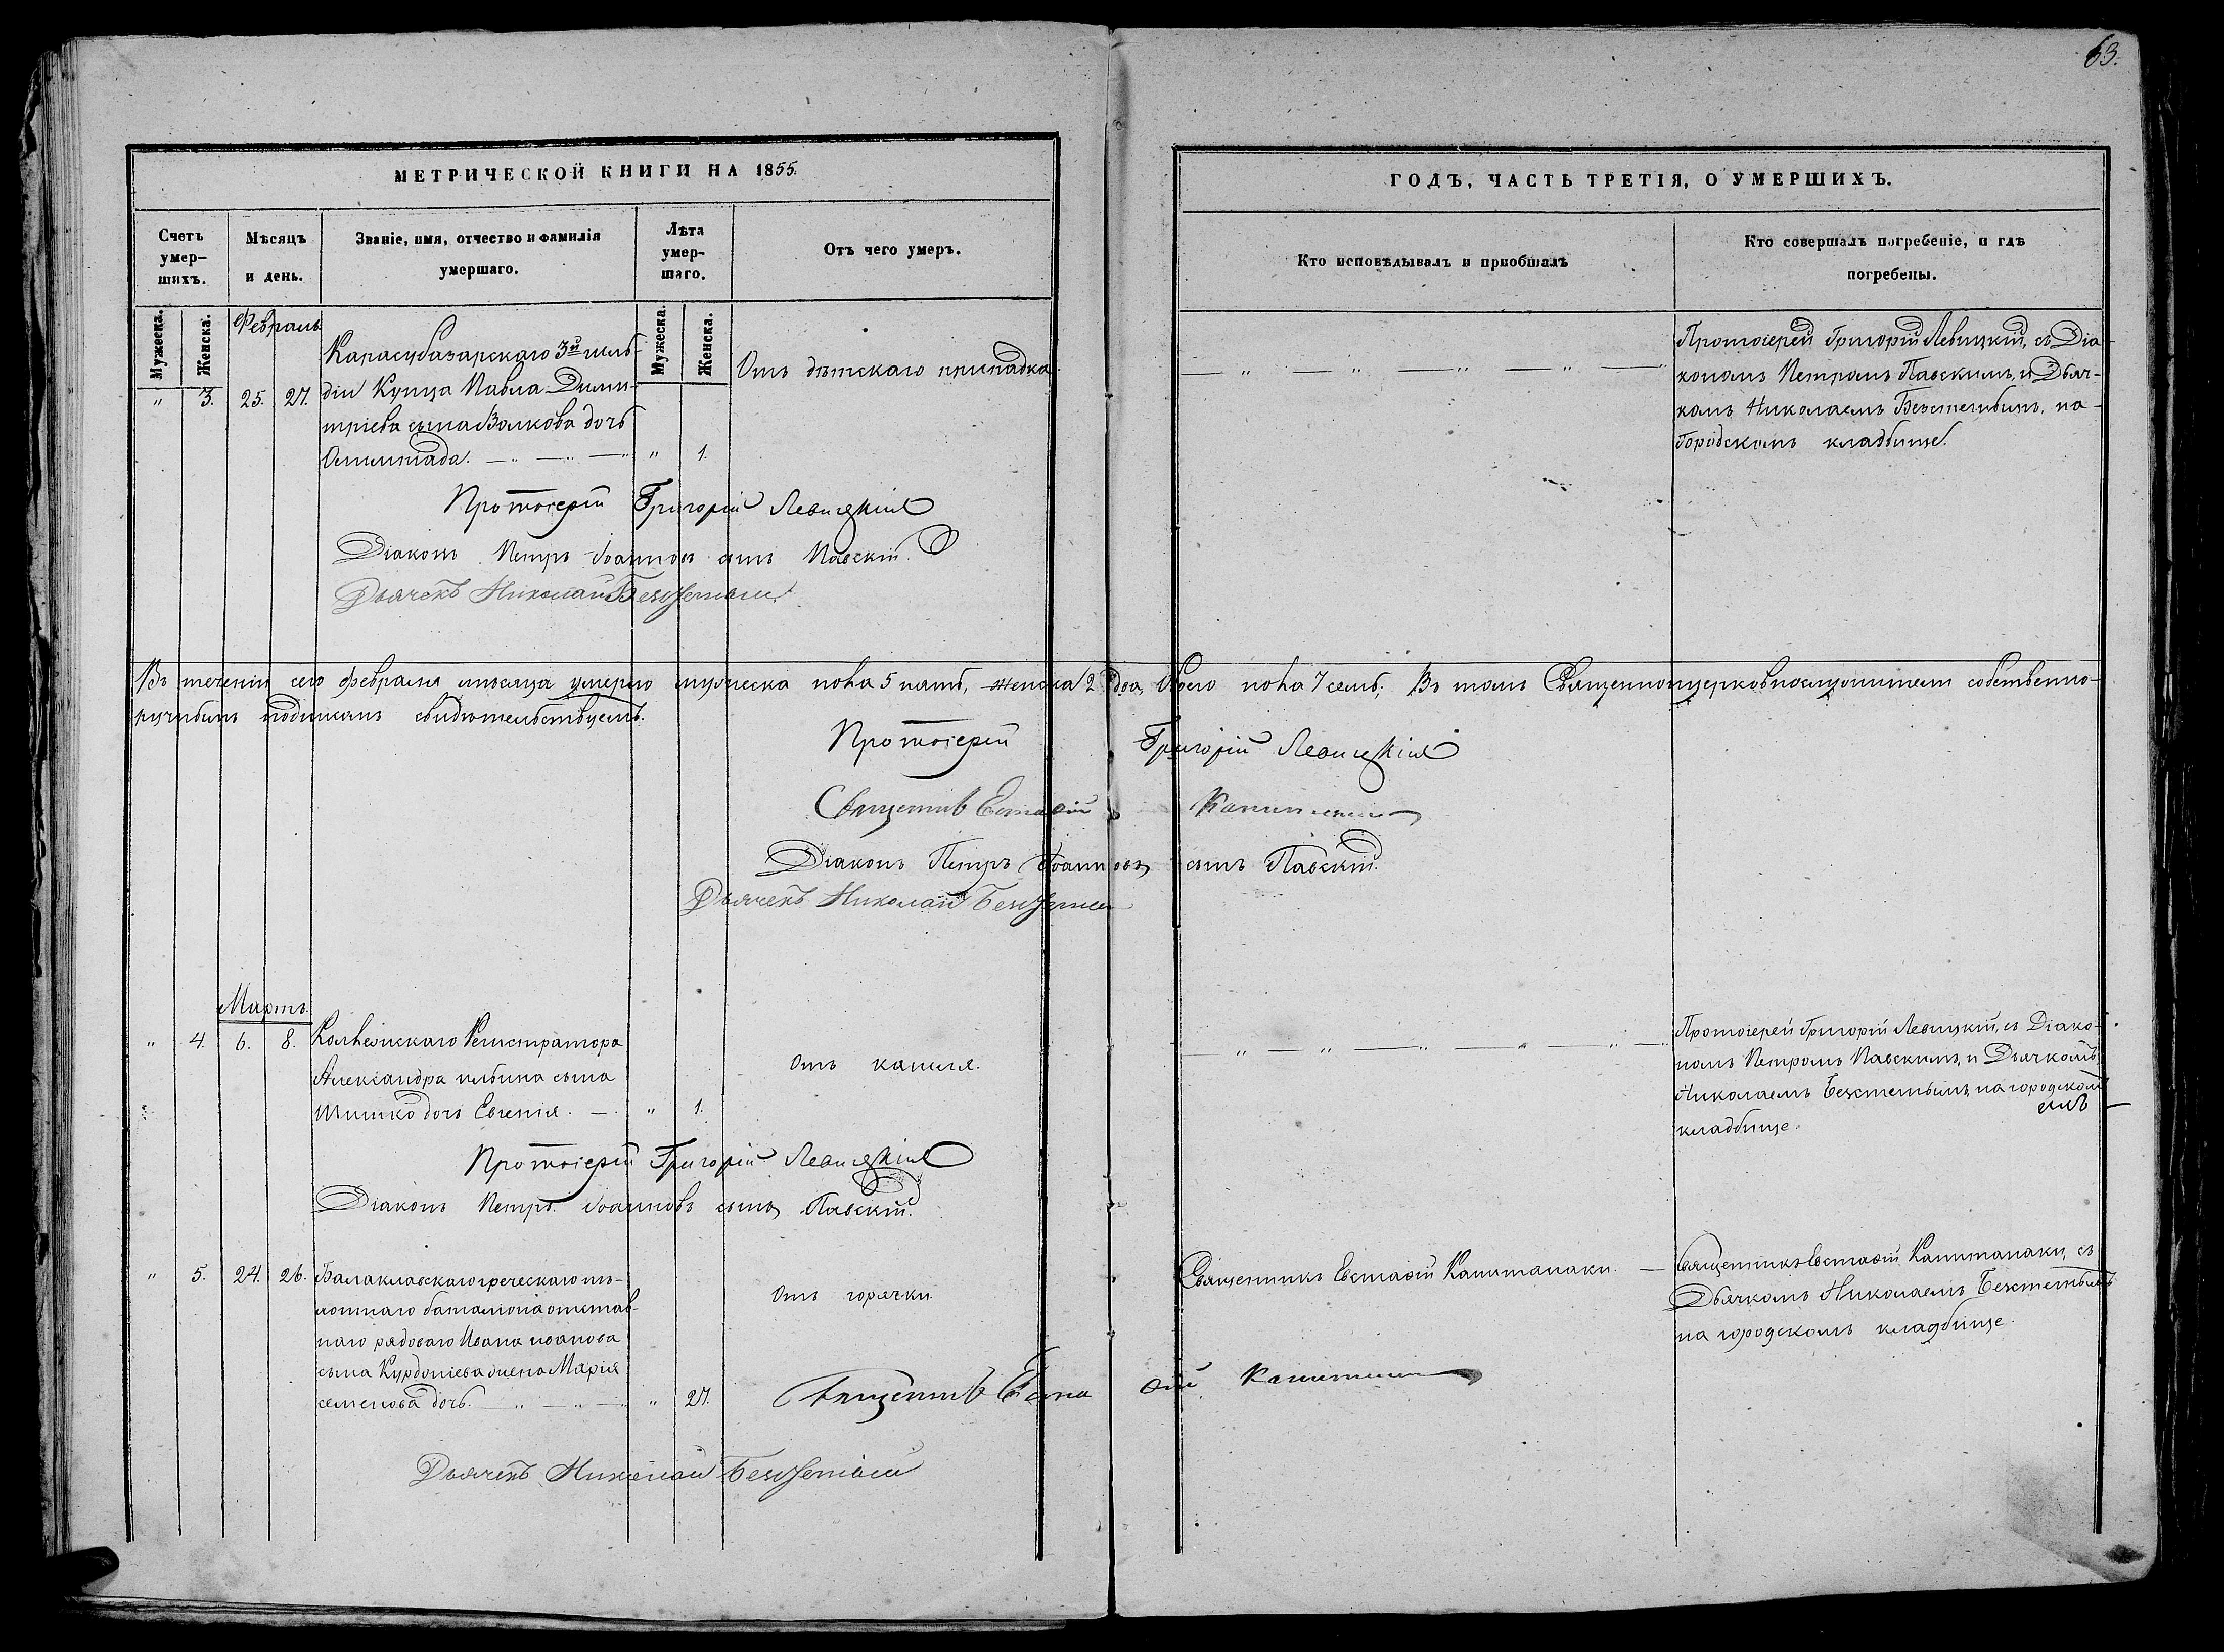 63.
МЕТРИЧЕСКОЙ КНИГИ НА 1855.
Счетъ умер-шихъ.
Мѣсяцъ и день.
Званіе, имя, отчество и фамилія умершаго.
Лѣта умер-шаго.
Отъ чего умеръ.
Мужеска.
Женска.
Мужеска.
Женска.
ГОДЪ, ЧАСТЬ ТРЕТІЯ, О УМЕРШИХЪ.
Кто исповѣдывалъ и пріобщалъ
Кто совершалъ погребеніе, и гдѣ погребены.
Февраль
" 3. 25. 27.
Карасубазарскаго 3й гиль-
діи Купца Павла Дими-
тріева сына Волкова дочь
Олимпіада. — " — " — " " 1.
Отъ дѣтскаго припадка.
— " — " — " — " — "
Протоіерей Григорій Левицкій, съ Діа-
кономъ Петромъ Павскимъ, и Дьяч-
комъ Николаемъ Безстетнымъ, на
Городскомъ кладбище.
Протоіерей Григорій Левицкій
Діаконъ Петръ Іоанновъ сынъ Павскій.
Дьячекъ Николай
Въ теченіи сего Февраля мѣсяца умерло мужеска пола 5 пять, женска 2 два, обоего пола 7 семь; Въ томъ Священноцерковнослужители собственно-
ручнымъ подписомъ свидѣтельствуемъ.
Протоіерей Григорій Левицкій
Священникъ Евстафій Капитанаки
Діаконъ Петръ Іоанновъ сынъ Павскій.
Дьячекъ Николай
Мартъ.
" 4. 6. 8.
Коллежскаго Регистратора
Александра сына
Шишко дочь Евгенія. — " 1.
Отъ кашля.
— " — " — " — " — " —
Протоіерей Григорій Левицкій, съ Діако-
номъ Петромъ Павскимъ, и Дьячкомъ
Николаемъ Безстетнымъ, на городском
кладбище.
Протоіерей Григорій Левицкій
Діаконъ Петръ Іоанновъ сынъ Павскій.
" 5. 24. 26.
Балаклавскаго греческаго пѣ-
хотнаго баталіона отстав-
наго рядоваго Ивана иванова
сына жена Марія
семенова дочь. — " — " — " 27.
Отъ горячки.
Священникъ Евстафій Капитанаки. —
Священникъ Евстафій Капитанаки, съ
Дьячкомъ Николаемъ Безстетнымъ
на городскомъ кладбище.
Священникъ Евстафій Капитанаки
Дьячекъ Николай